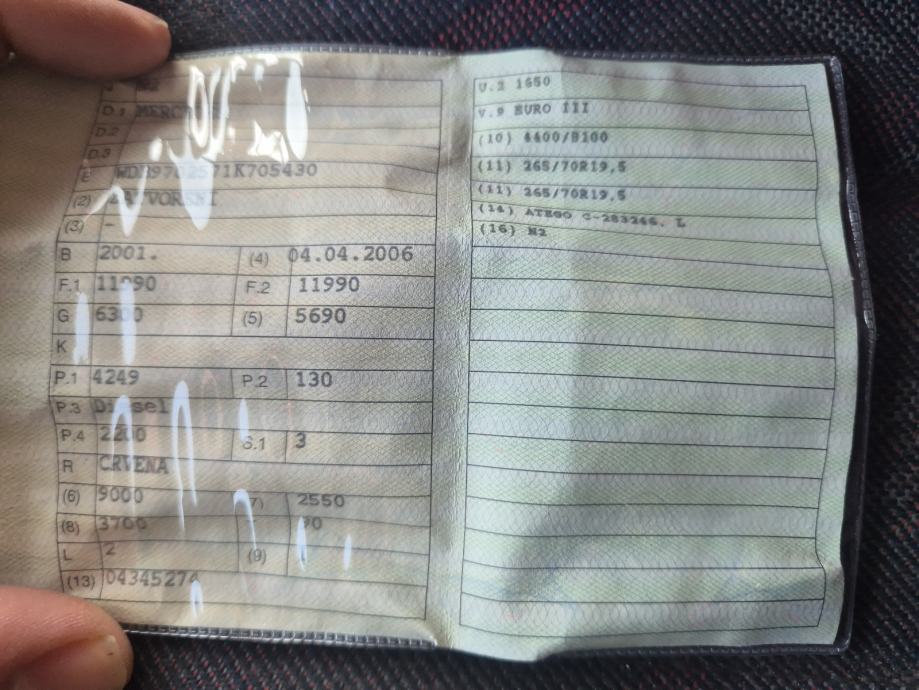 J N2
D.1 MERC
D.2
D.3
E 71K705430
(2) ZATVORENI
(3) -
B 2001. (4) 04.04.2006
F.1 11990 F.2 11990
G 6300 (5) 5690
K
P.1 4249 P.2 130
P.3 Diesel
P.4 2200 S.1 3
R CRVENA
(6) 9000 (7) 2550
(8) 3700 90
L 2 (9)
(13) 04345274
U.2 1650
V.9 EURO III
(10) 4400/8100
(11) 265/70R19,5
(11) 265/70R19,5
(14) ATEGO C-283246. L
(16) N2